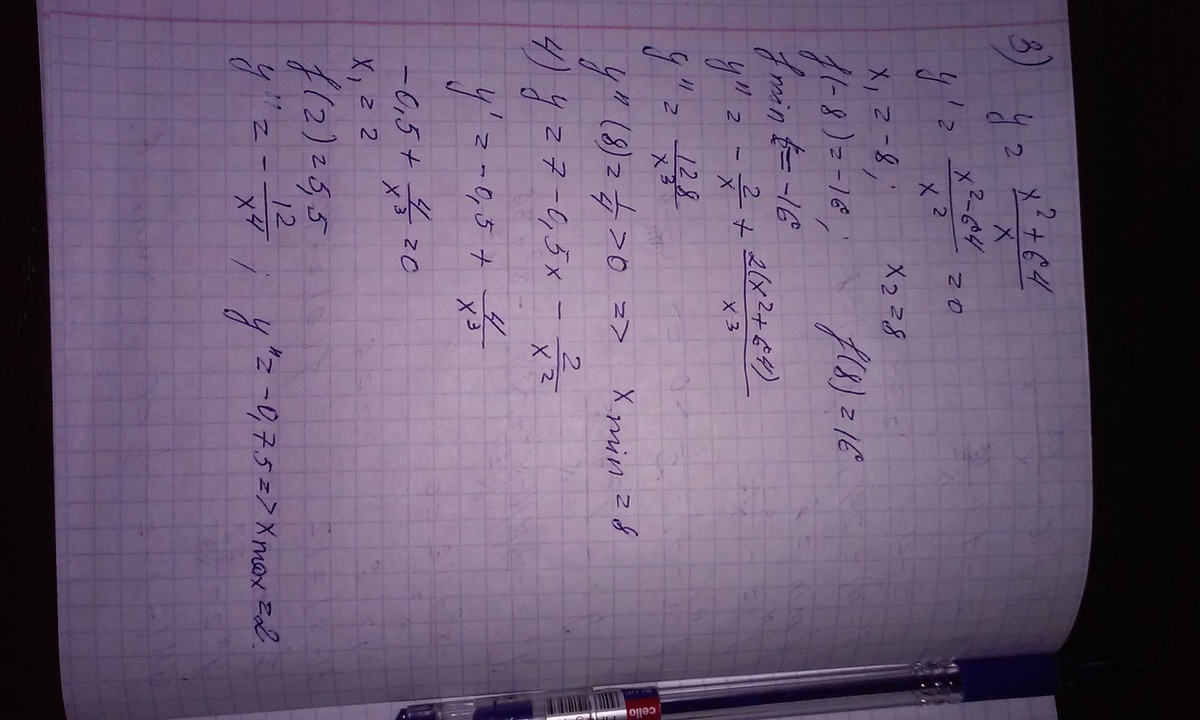 3) y = x²+64/x
y' = x²-64/x² = 0
x₁ = -8; x₂ = 8
f(-8) = -16; f(8) = 16
f min = -16
y'' = -2/x + 2(x²+64)/x³
y'' = 128/x³
y''(8) = 1/4 > 0 => x min = 8
4) y = 7 - 0,5x - 2/x²
y' = -0,5 + 4/x³
-0,5 + 4/x³ = 0
x₁ = 2
f(2) = 5,5
y'' = -12/x⁴ ; y'' = -0,75 => x max = 2
cello
BLUE